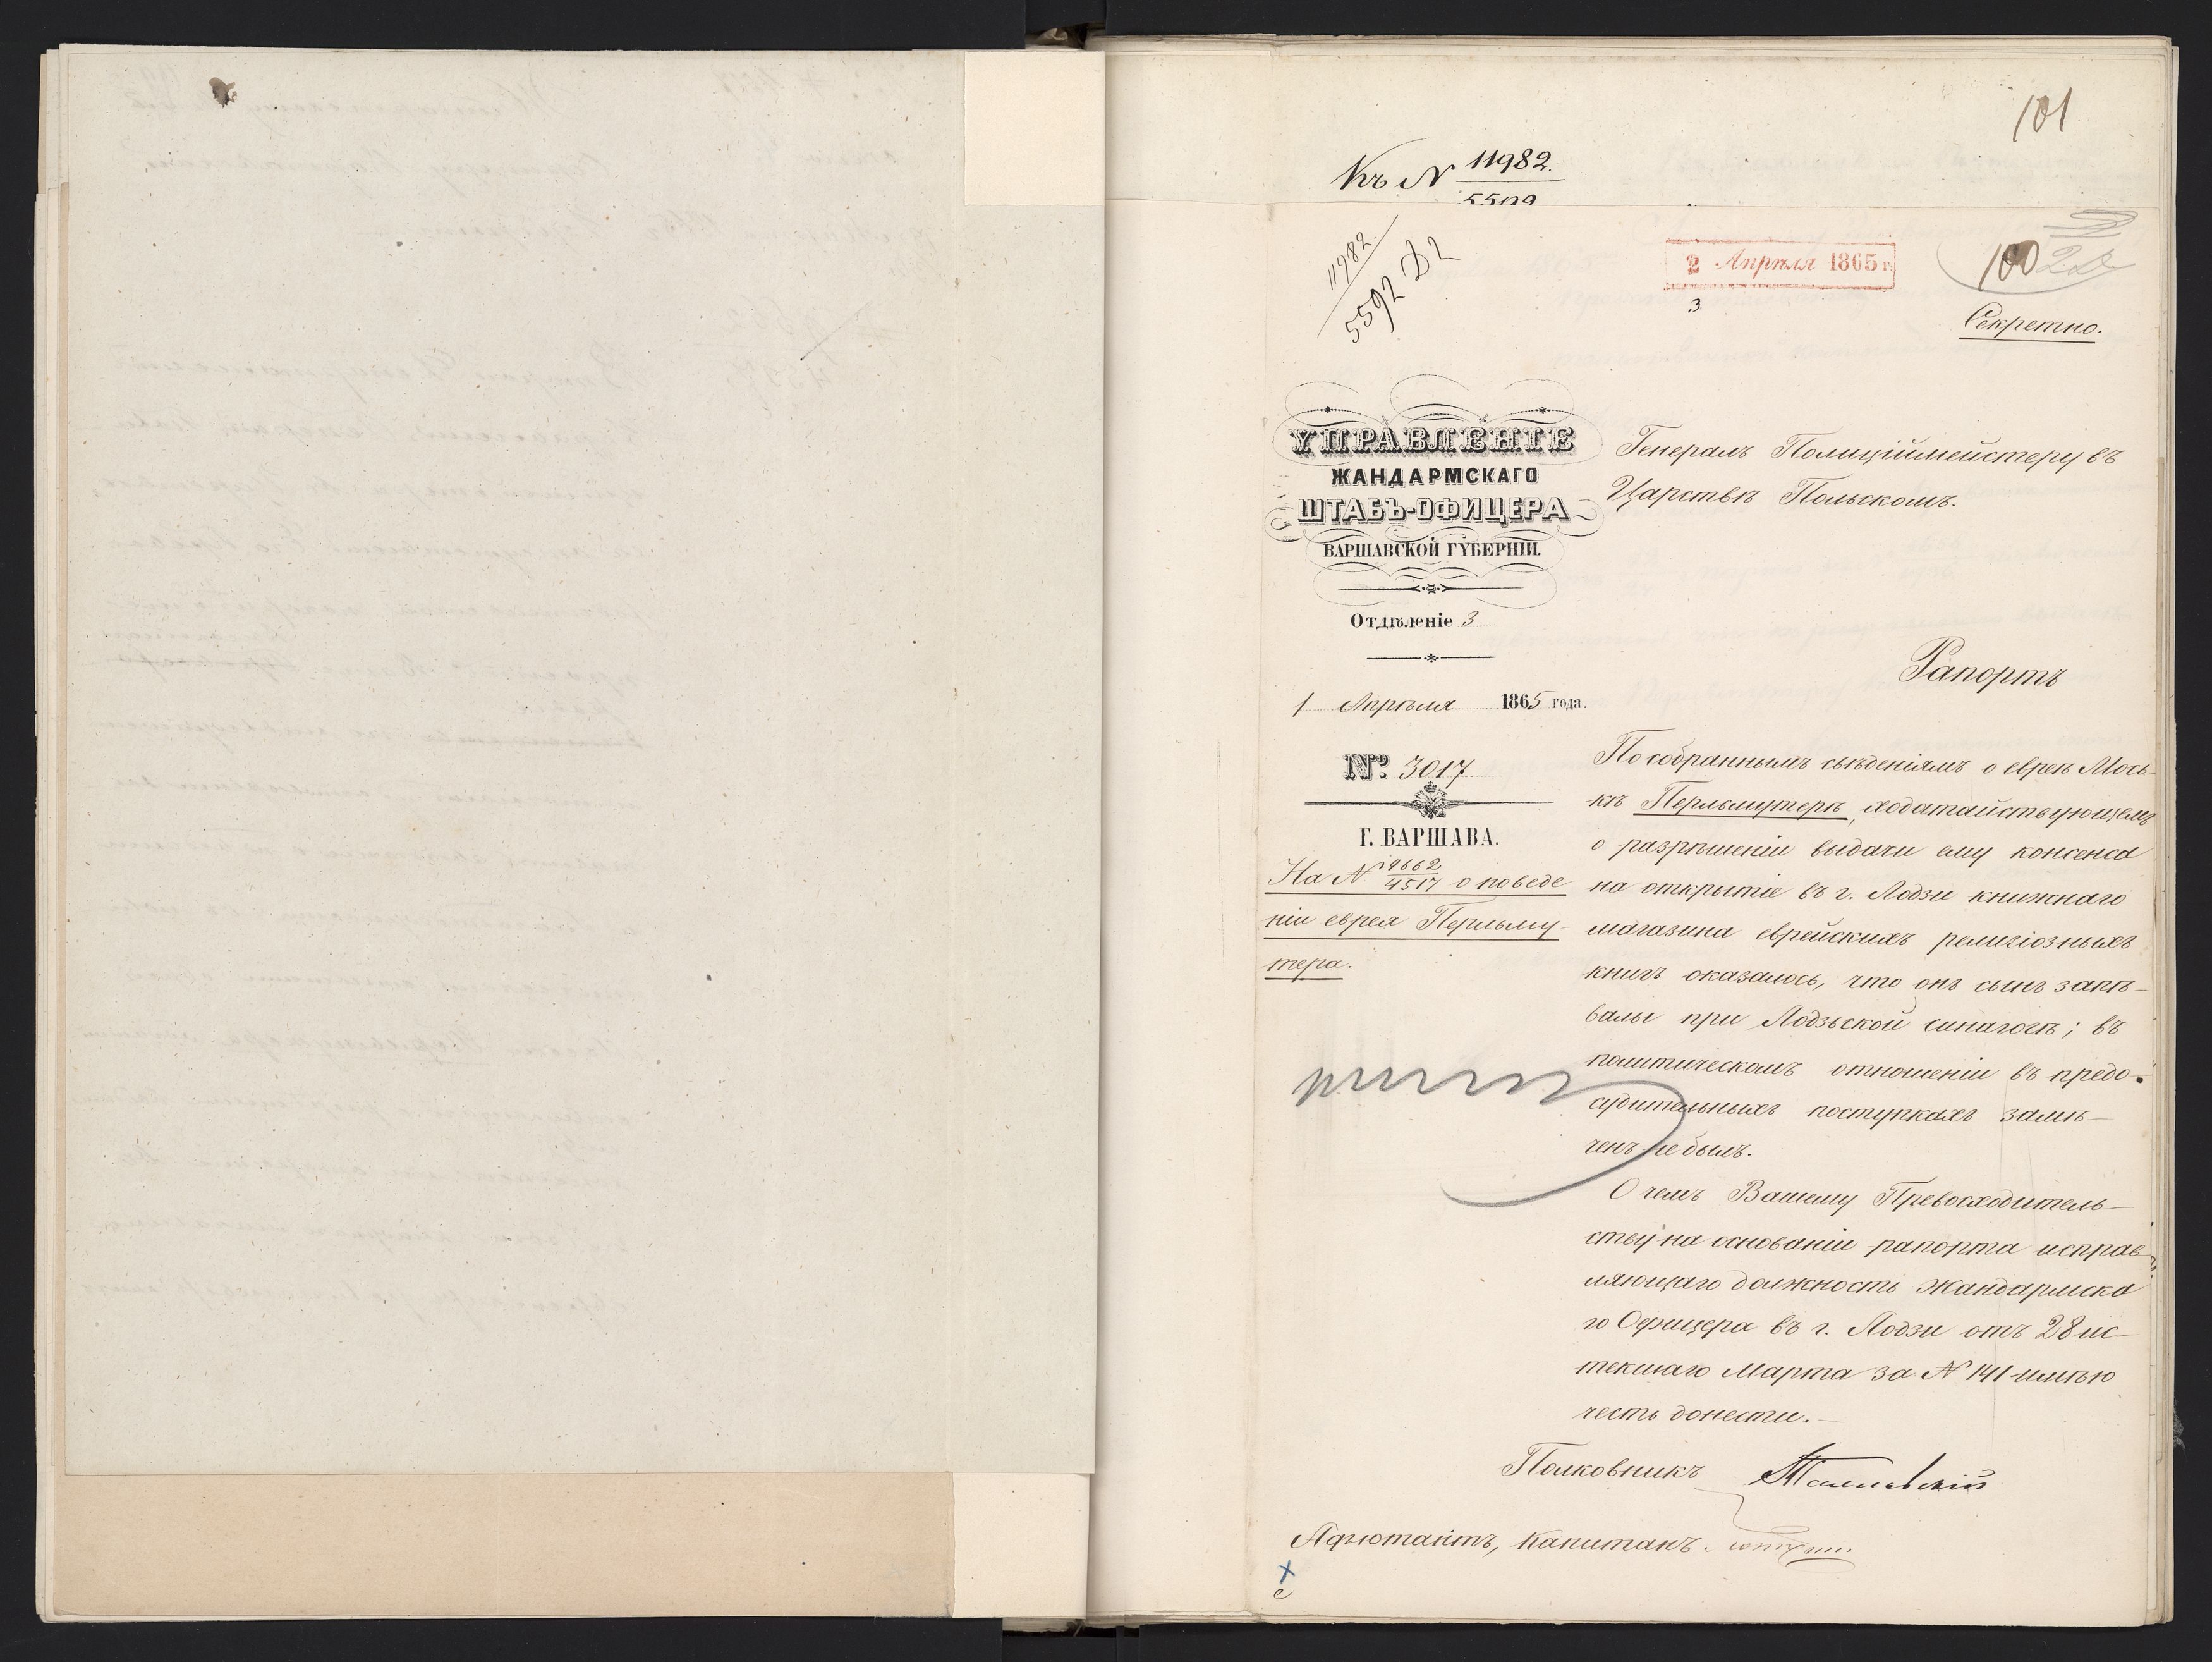 101
Къ N 11982.
5509
11982.
5592 Д2
2 Апрѣля 1865 г.
3
100
Секретно.
УПРАВЛЕНІЕ
ЖАНДАРМСКАГО
ШТАБЪ-ОФИЦЕРА
ВАРШАВСКОЙ ГУБЕРНІИ.
Отдѣленіе 3
1 Апрѣля 1865 года.
№ 3017
Г. ВАРШАВА.
На N 9662/4517 о поведе
ніи еврея Перльму-
тера.
Генералъ Полиціймейстеру въ
Царствѣ Польскомъ.
Рапортъ
По собраннымъ свѣденіямъ о евреѣ Мось-
кѣ Перльмутерѣ, ходатайствующемъ
о разрѣшеніи выдачи ему консенса
на открытіе въ г. Лодзи книжнаго
магазина еврейскихъ религіозныхъ
книгъ оказалось, что онъ сынъ запѣ-
валы при Лодзьской синагогѣ; въ
политическомъ отношеніи въ предо-
судительныхъ поступкахъ замѣ-
ченъ не былъ.
О чемъ Вашему Превосходитель-
ству на основаніи рапорта исправ-
ляющаго должность Жандармска
го Офицера въ г. Лодзи отъ 28 ис-
текшаго Марта за N 141 имѣю
честь донести.-
Полковникъ
Адъютантъ, Капитанъ